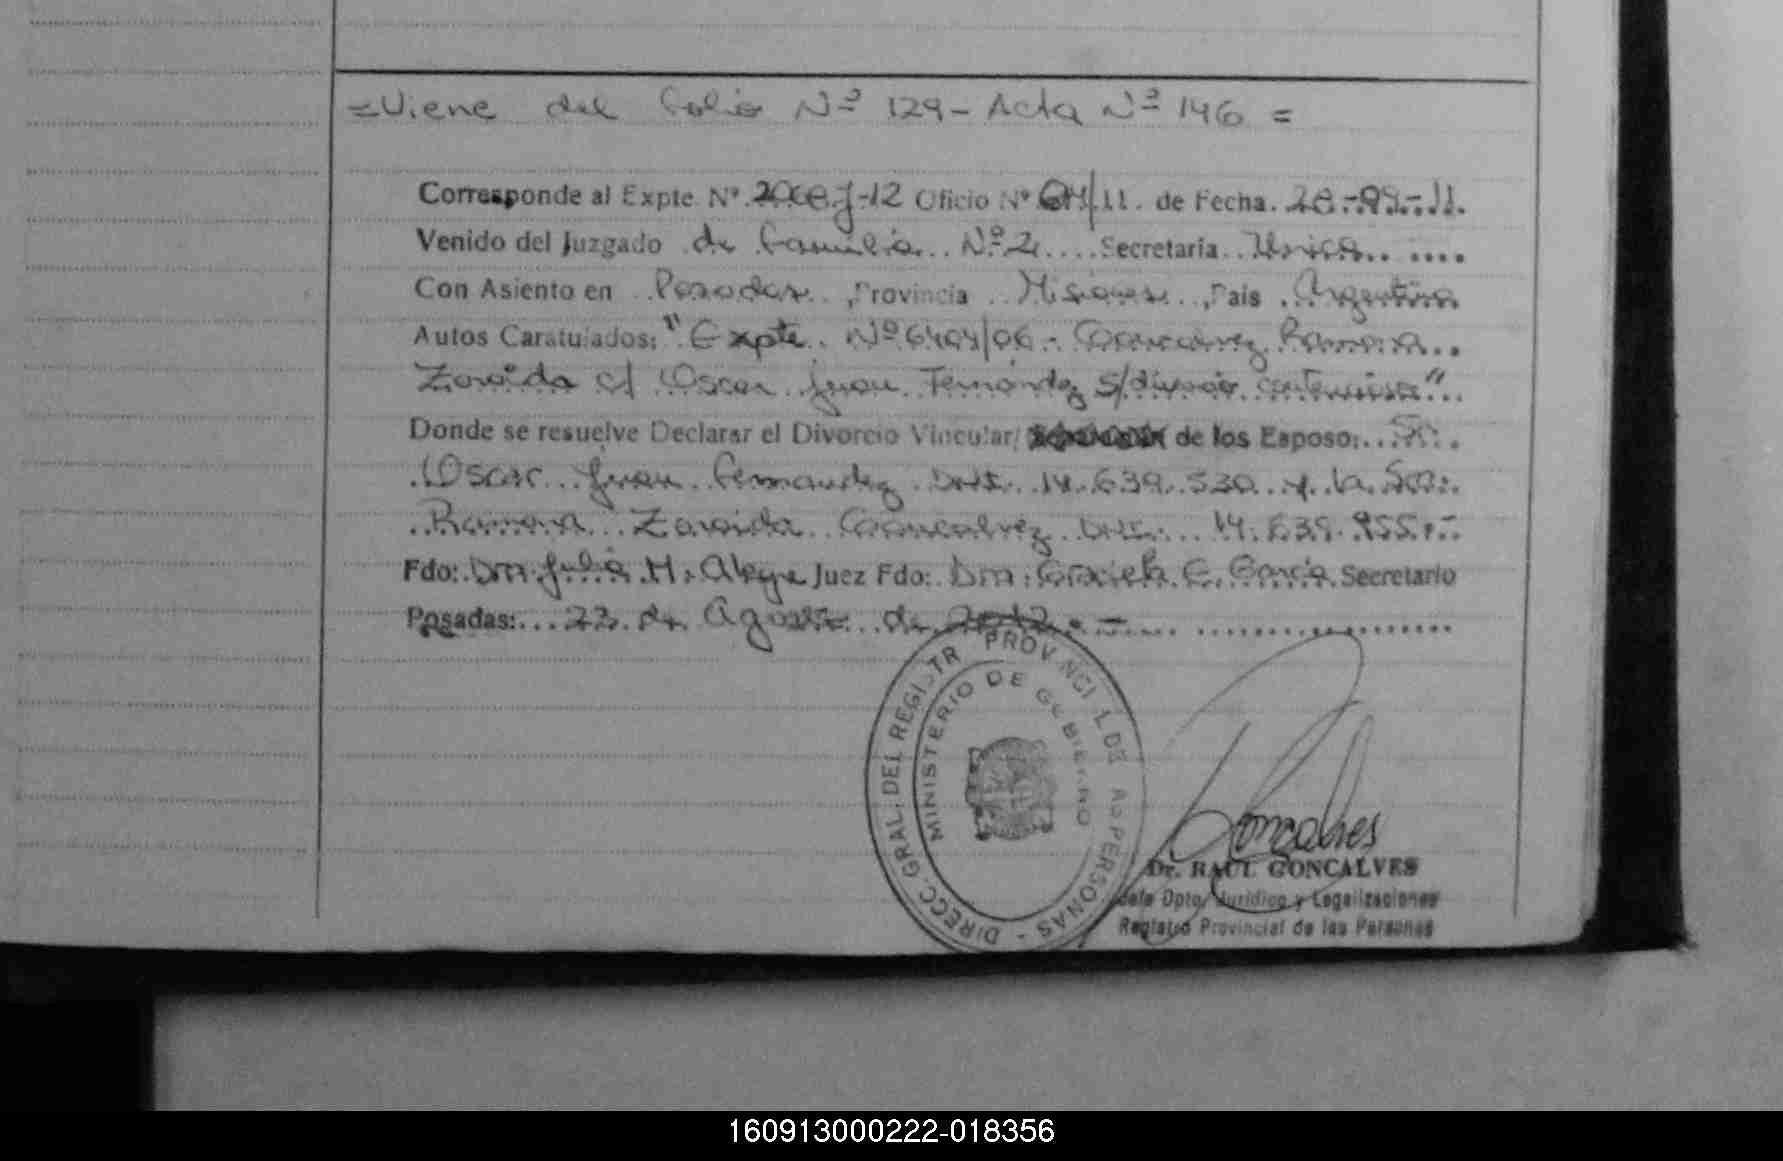 =Viene del folio Nº 129 - Acta Nº 146 =
Corresponde al Expte. Nº 2068-J-12 Oficio Nº 611/11. de Fecha. 28-09-11.
Venido del Juzgado de Familia Nº 2 Secretaria Unica
Con Asiento en Posadas, Provincia Misiones, Pais Argentina
Autos Caratulados: "Expte. Nº 6404/06 - Goncalvez Ramona
Zoraida c/ Oscar Juan Fernández s/divorcio contencioso"
Donde se resuelve Declarar el Divorcio Vincular/ de los Esposo: Sr.
Oscar Juan Fernandez DNI. 14.639.530 y la Sra.
Ramona Zoraida Goncalvez DNI. 14.639.955.-
Fdo: Dra. Julia H. Alegre Juez Fdo: Dra. Graciela E. García Secretario
Posadas: 22 de Agosto de 2012.-
DIRECC. GRAL. DEL REGISTR PROVINCI L DE AS PERSONAS -
MINISTERIO DE GOBIERNO
Goncalves
Dr. RAUL GONCALVES
Jefe Dpto. Juridico y Legalizaciones
Registro Provincial de las Personas
160913000222-018356